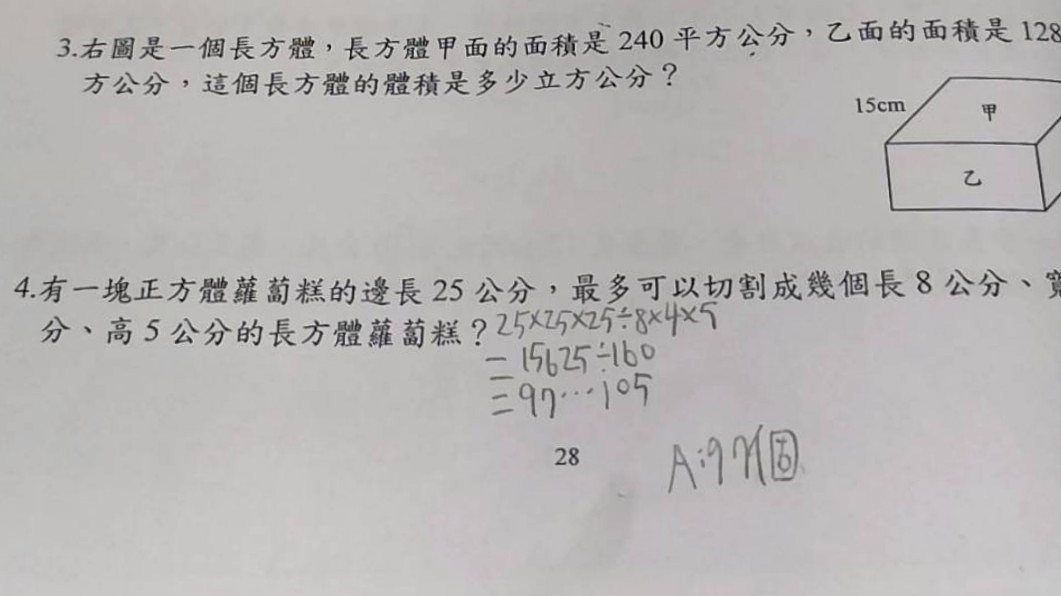 3.右圖是一個長方體，長方體甲面的面積是 240 平方公分，乙面的面積是 128
方公分，這個長方體的體積是多少立方公分？
15cm
甲
乙
4.有一塊正方體蘿蔔糕的邊長 25 公分，最多可以切割成幾個長 8 公分、寬
分、高 5 公分的長方體蘿蔔糕？25×25×25÷8×4×5
=15625÷160
=97…105
28
A:97個